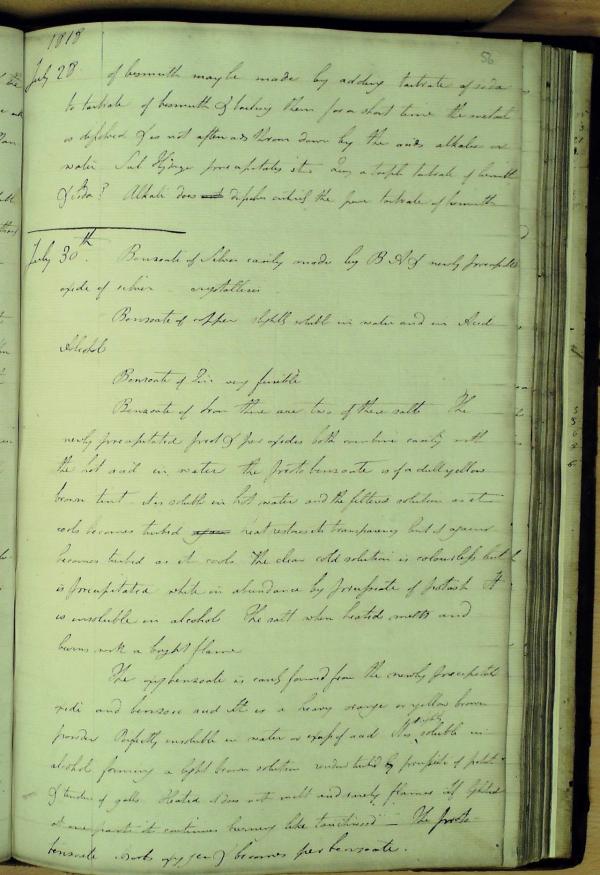 1818
56
July 28 of bismuth may be made by adding tartrate of soda
to tartrate of bismuth & boiling them for a short time the metal
is dissolved & is not afterwards thrown down by the acids alkalies or
water Sul Hydrogn precipitates it is a triple tartrate of bismuth
& soda? Alkali does dissolve entirely the pure tartrate of bismuth
July 30th. Benzoate of Silver easily made by B A & newly precipitated
oxide of silver crystallises
Benzoate of copper slightly soluble in water and in Acid
Alcohol
Benzoate of very fusible
Benzoate of Iron there are two of these salts The
newly precipitated prot & per oxides both combine easily with
the hot acid in water the proto benzoate is of a dull yellow
brown tint it is soluble in hot water and the filtered solution as it
cools becomes turbid heat restores its transparency but it again
becomes turbid as it cools. The clear cold solution is colourless but
is precipitated white in abundance by prussiate of potash It
is insoluble in alcohol The salt when heated melts and
burns with a bright flame
The oxybenzoate is easily formed from the newly precipitated
oxide and benzoic acid It is a heavy orange or yellow brown
powder Perfectly insoluble in water or excess of acid It is slightly soluble in
alcohol forming a light brown solution rendered turbid by prussiate of potash
& tincture of galls. Heated it does not melt and rarely flames If lighted
at one part it continues burning like touchwood — The proto
benzoate absorbs oxygen & becomes per benzoate.